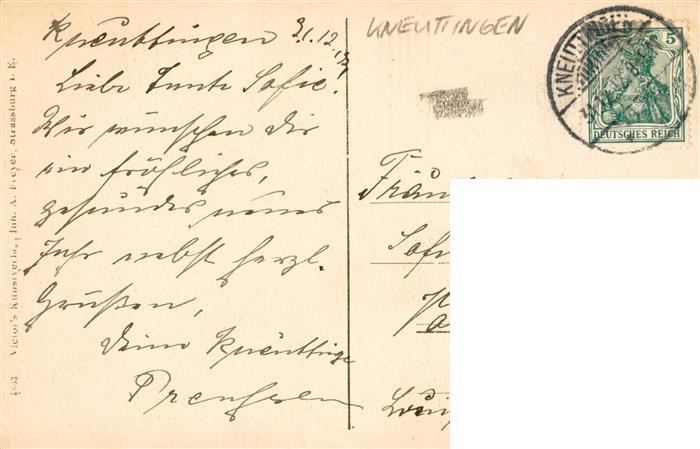 Kneuttingen 31.12.
Liebe Tante Sofie!
Wir wünschen Dir
ein fröhliches,
gesundes neues
Jahr nebst herzl.
Grüßen,
Deine Kneuttinger
KNEUTTINGEN
5
DEUTSCHES REICH
Fräu
Sof
4953 Victor's Kunstverlag, Inh. A. Freyer, Strassburg i. E.